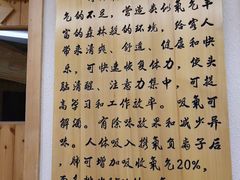 气的不足，营造类似氧气丰
富的森林般的环境，给客人
带来清爽、舒适、健康和快
乐，可快速恢复体力，使头
脑清醒、注意力集中，可提
高学习和工作效率。吸氧可
解酒。有除味效果和减少异
味。人体吸入携氧负离子后
，肺可增加吸收氧气20%，